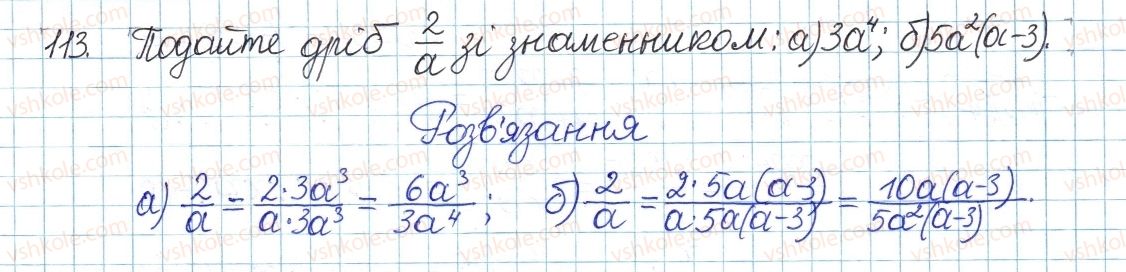 113. Подайте дріб 2/a зі знаменником: а) 3a⁴; б) 5a²(a-3).
Розв'язання
а) 2/a = 2·3a³/a·3a³ = 6a³/3a⁴; б) 2/a = 2·5a(a-3)/a·5a(a-3) = 10a(a-3)/5a²(a-3).
vshkole.com